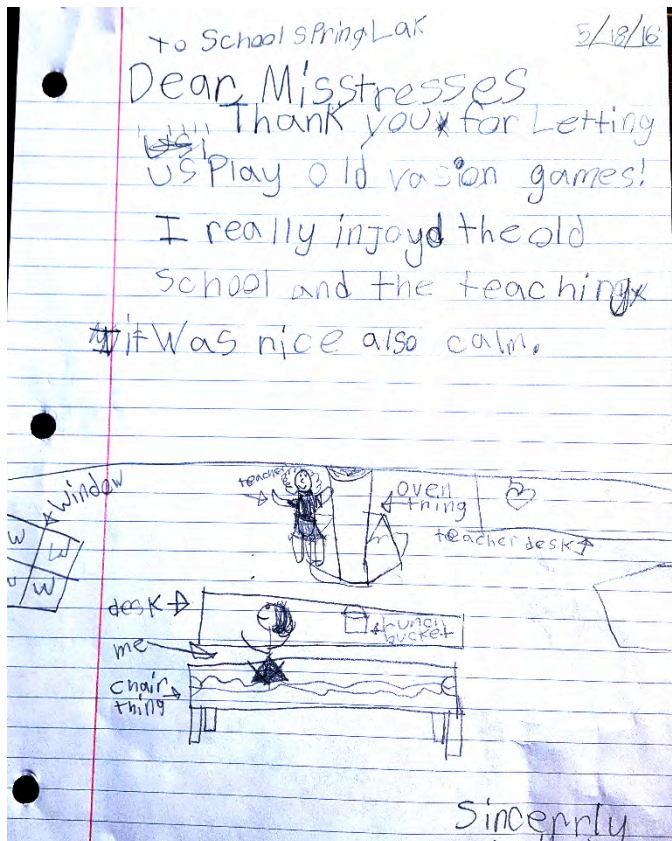 to School Spring Lak
5/18/16
Dear Misstresses
Thank you for Letting
us Play old vasion games!
I really injoyd the old
School and the teaching
it Was nice also calm.
Window
teacher
oven
thing
teacher desk
W
W
W
desk
lunch
bucket
me
chair
thing
Sincerrly